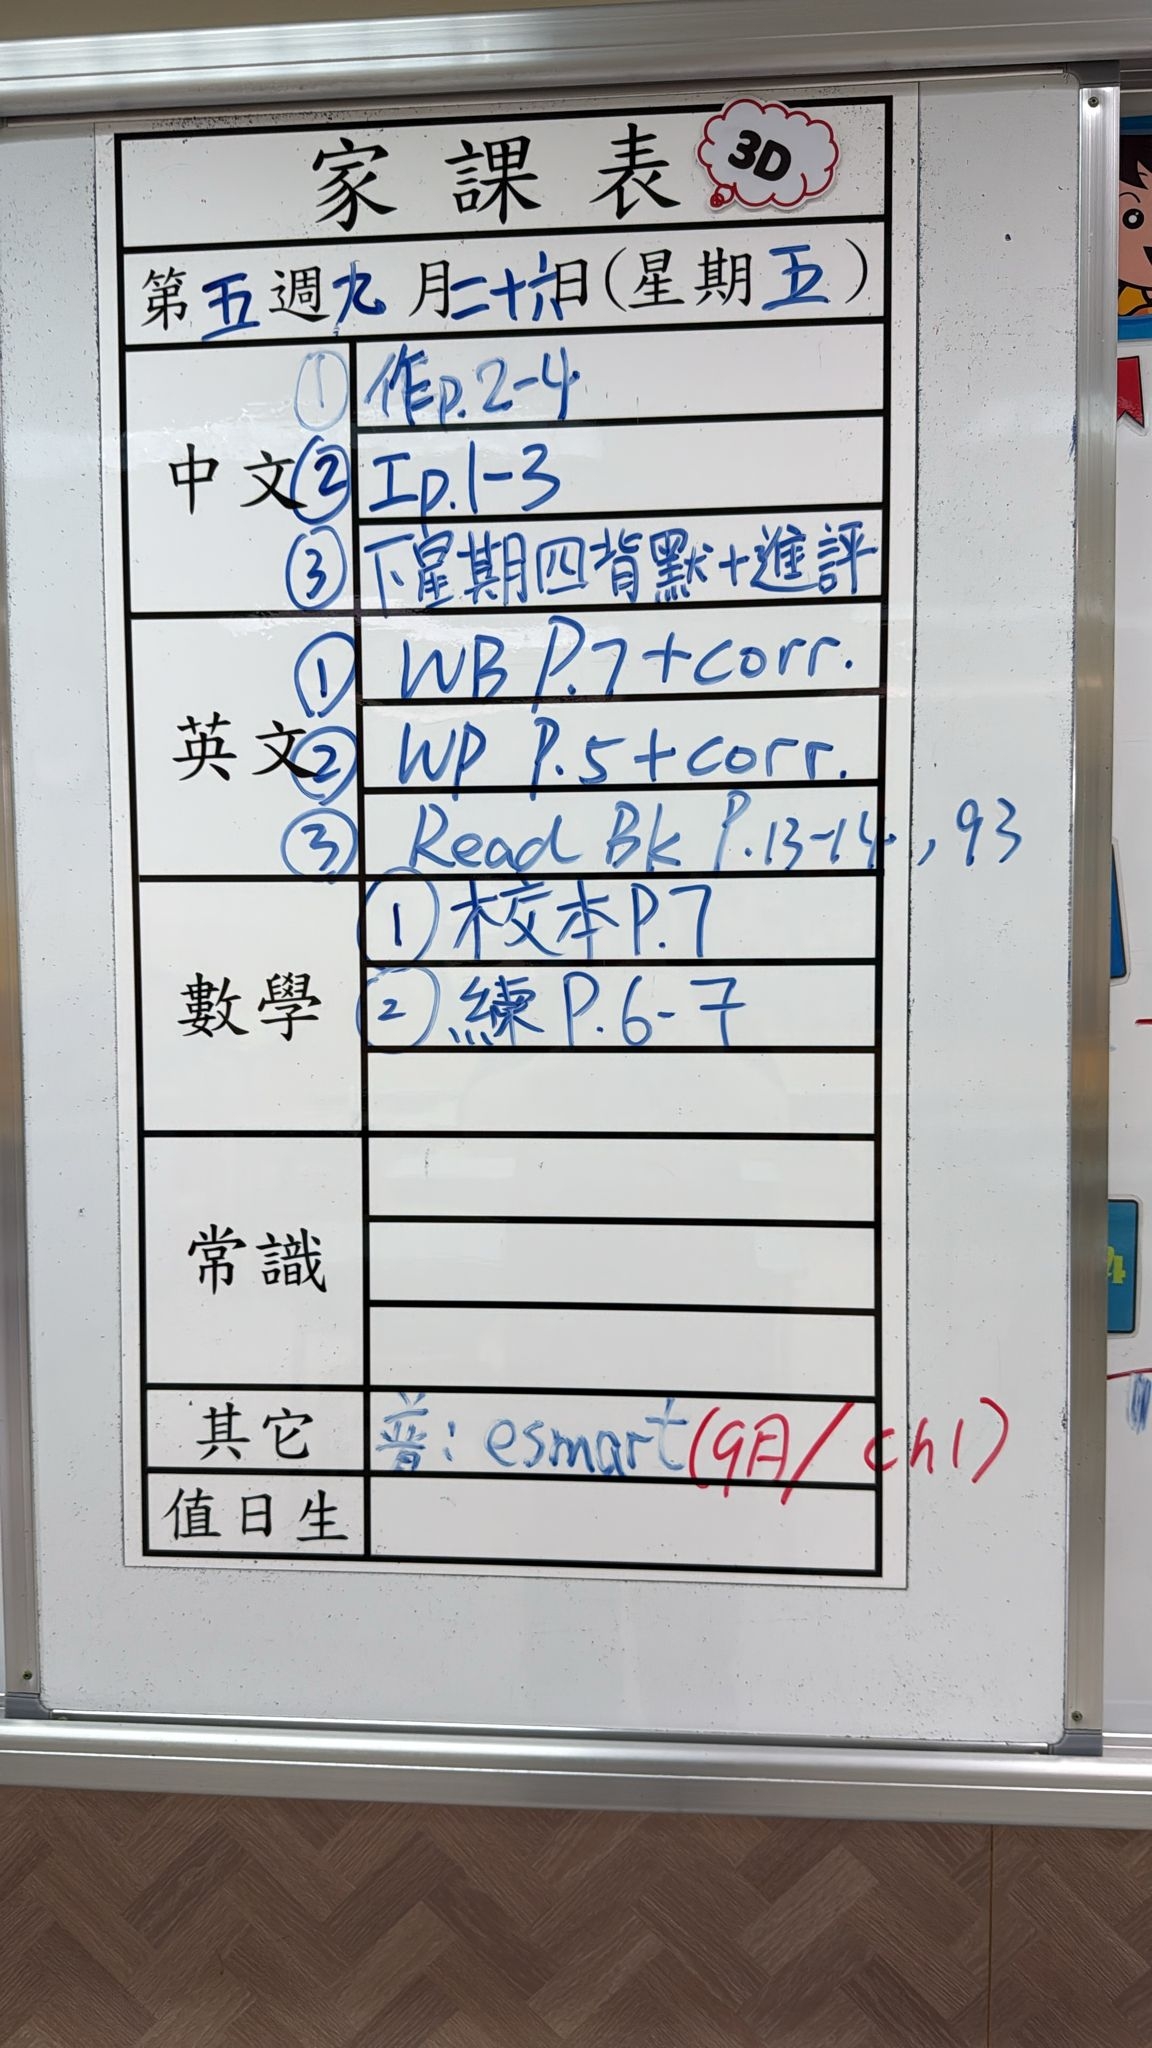 家課表 3D
第五週九月二十六日(星期五)
中文
① 作p.2-4
② 工p.1-3
③ 下星期四背默+進評
英文
① WB P.7+corr.
② WP P.5+corr.
③ Read Bk P.13-14, 93
數學
① 校本P.7
② 練P.6-7
常識
其它
普: esmart(9月/ch1)
值日生